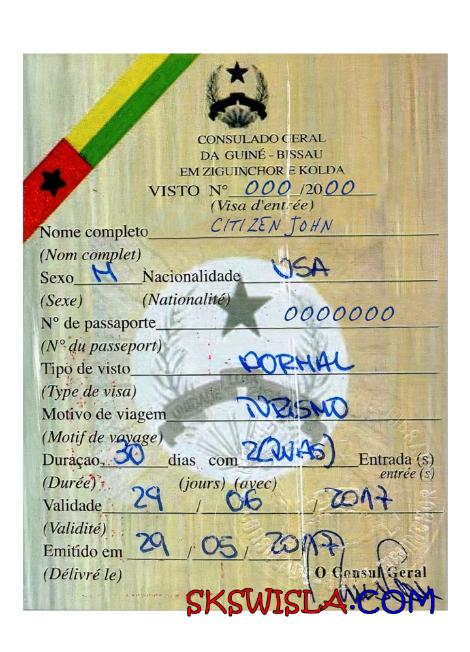 CONSULADO GERAL
DA GUINÉ - BISSAU
EM ZIGUINCHOR E KOLDA
VISTO N° 000 /2000
(Visa d'entrée)
Nome completo CITIZEN JOHN
(Nom complet)
Sexo M Nacionalidade USA
(Sexe) (Nationalité)
N° de passaporte 0000000
(N° du passeport)
Tipo de visto NORMAL
(Type de visa)
Motivo de viagem TURISMO
(Motif de voyage)
Duração 30 dias com 2(DUAS) Entrada (s)
(Durée) (jours) (avec) entrée (s)
Validade 29 / 06 / 2017
(Validité)
Emitido em 29 / 05 / 2017
(Délivré le) O Consul Geral
SKSWISLA.COM